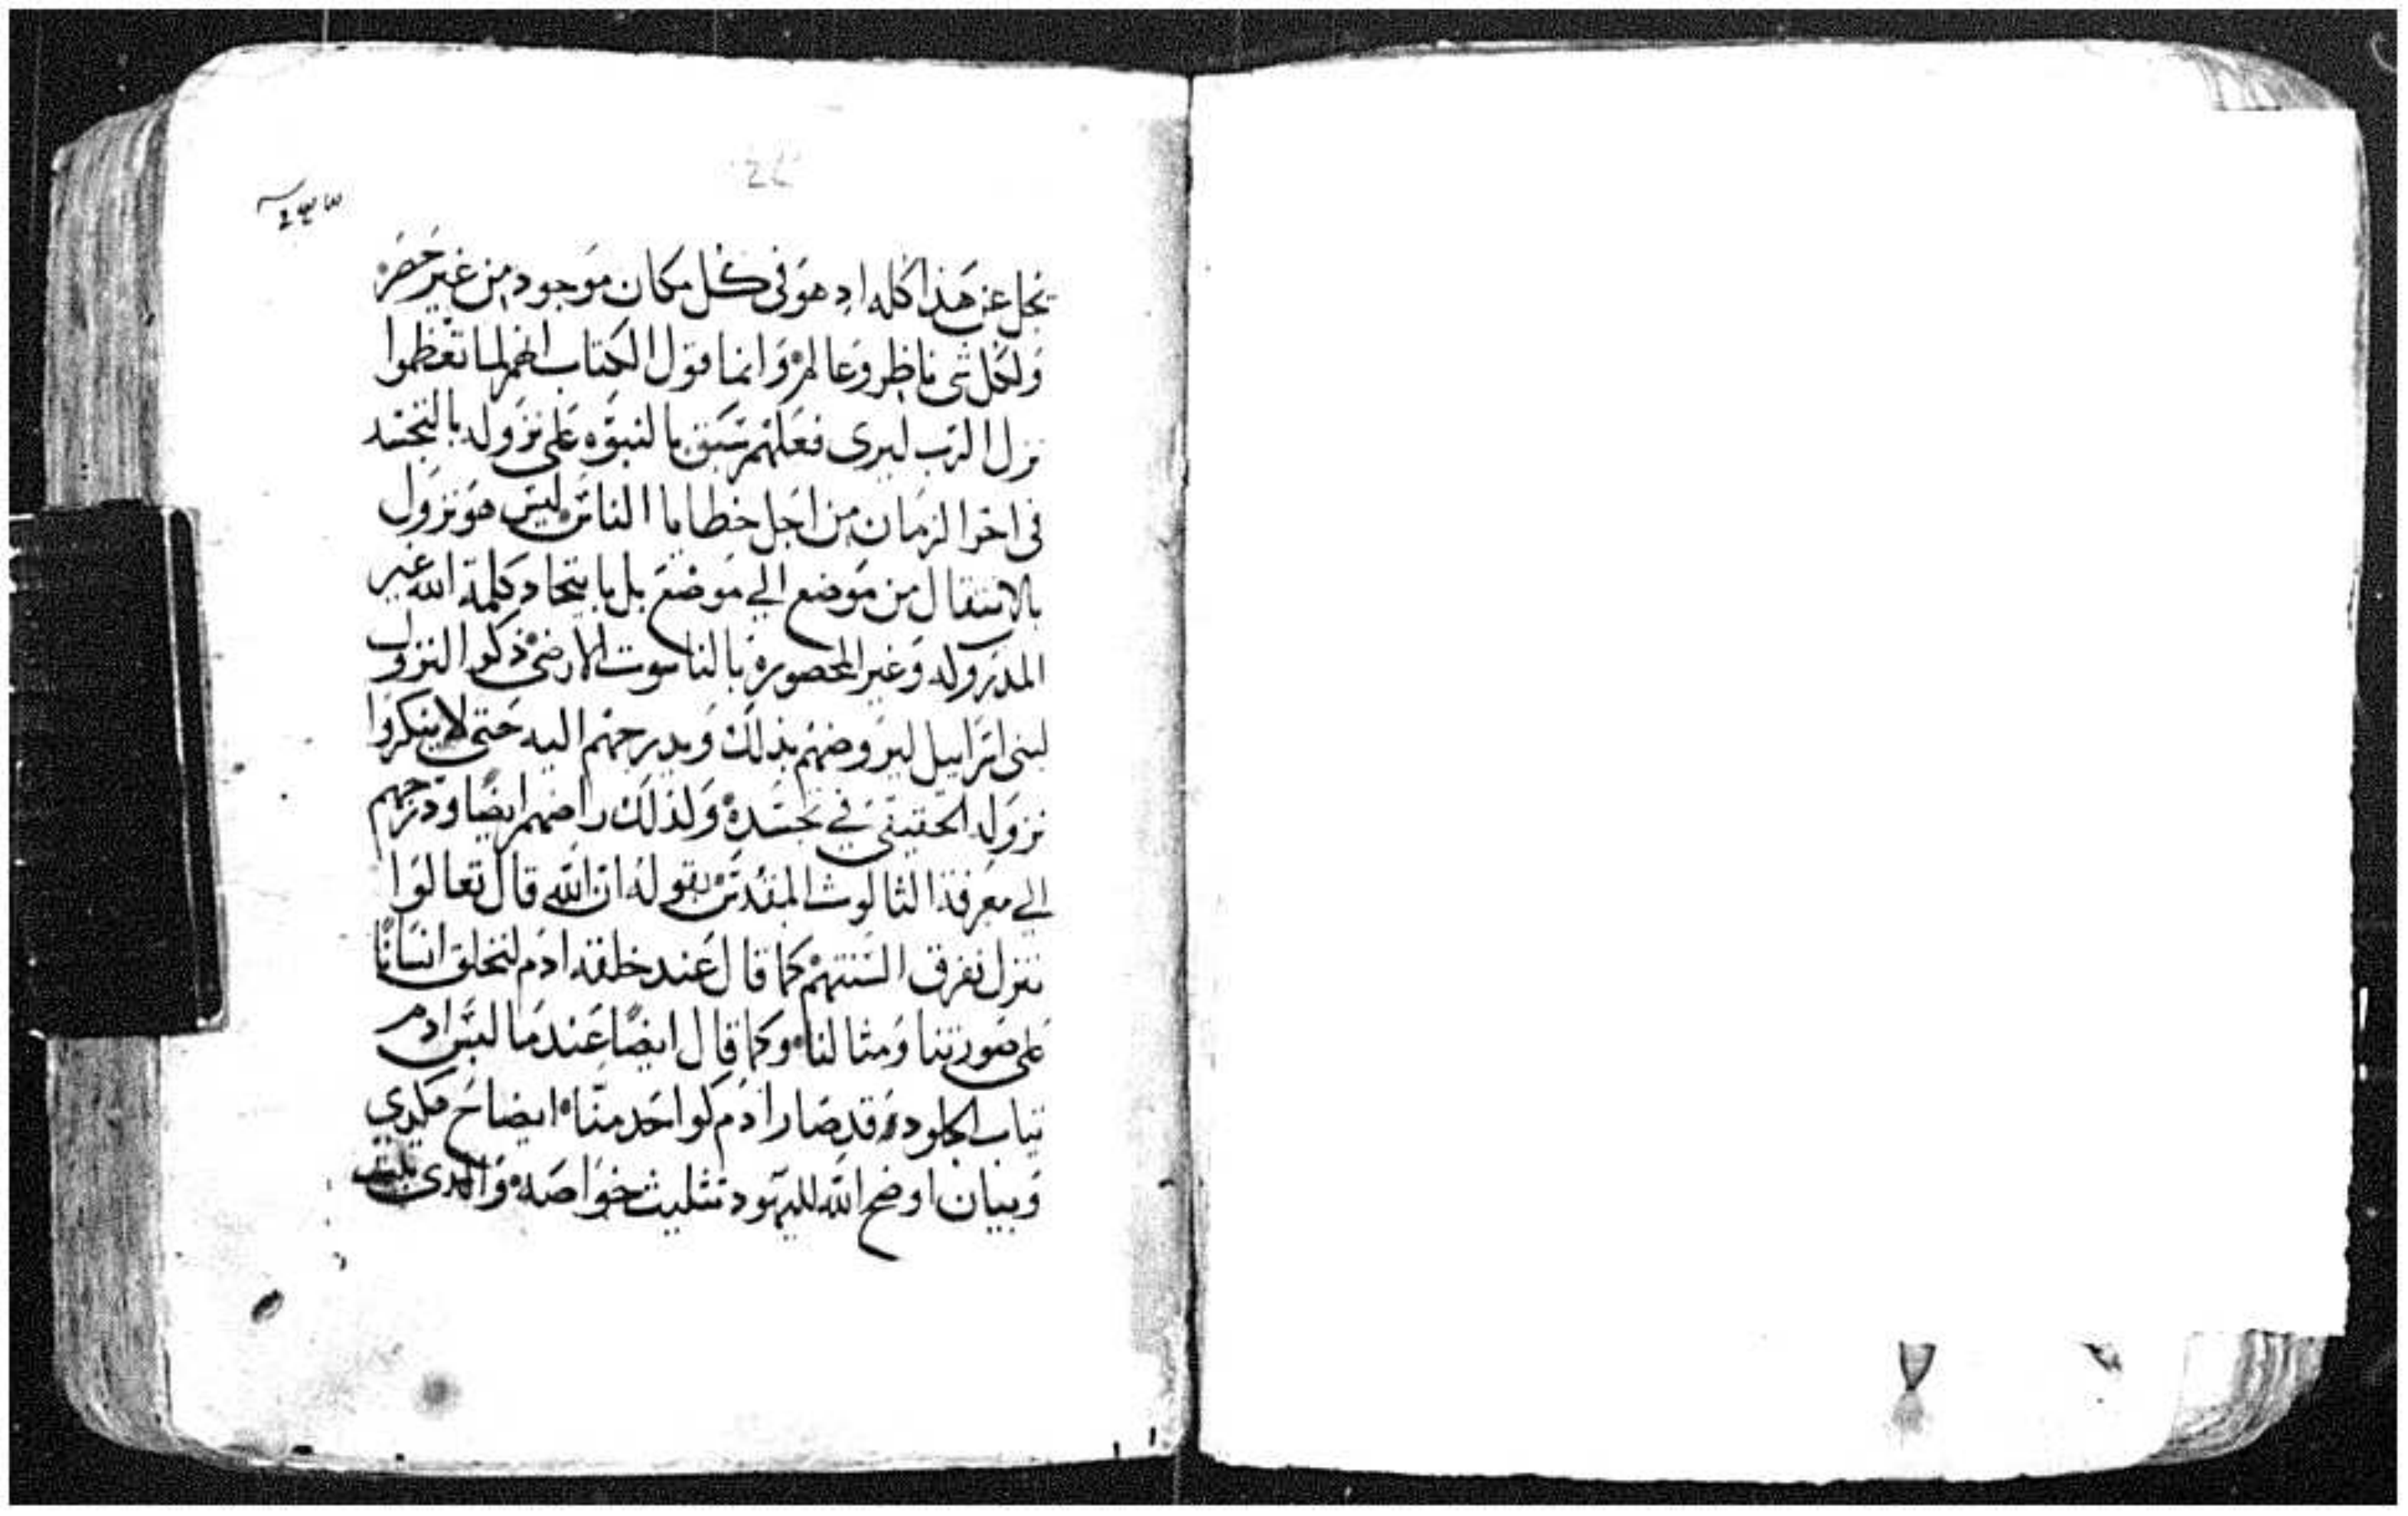 يجل عن هذا كله اد هو فى كل مكان موجود من غير حصر
ولكل شى ناظر وعالم وانما قول الكتاب انهم لما تعظموا
نزل الرب ليرى فعلهم سبق بالنبوه على نزوله بالتجسد
فى اخر الزمان من اجل خطايا الناس ليس هو نزول
بالانتقال من موضع الي موضع بل باتحاد كلمة الله غير
وغير المحصوره بالناسوت الارضى ذكر النزول
لبنى اسراييل ليروضهم بذلك ويدرجهم اليه حتى لا ينكروا
نزوله الحقيقى في تجسده ولذلك راضهم ايضا ودرجهم
الي معرفة الثالوث المقدس بقوله ان الله قال تعالوا
ننزل نفرق السنتهم كما قال عند خلقة ادم لنخلق انسانا
على صورتنا ومثالنا وكما قال ايضا عند ما لبس ادم
تياب الجلود قد صار ادم كواحد منا ايضاح
وبيان اوضح الله لليهود تثليث خواصه والدى